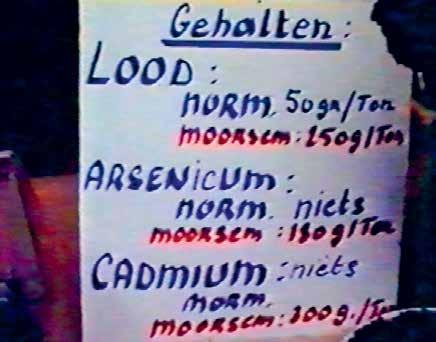 Gehalten:
LOOD:
norm. 50gr/Ton
moorsem: 250g/Ton
ARSENICUM:
norm. niets
moorsem: 180g/Ton
CADMIUM: niets
norm.
moorsem: 300g./To